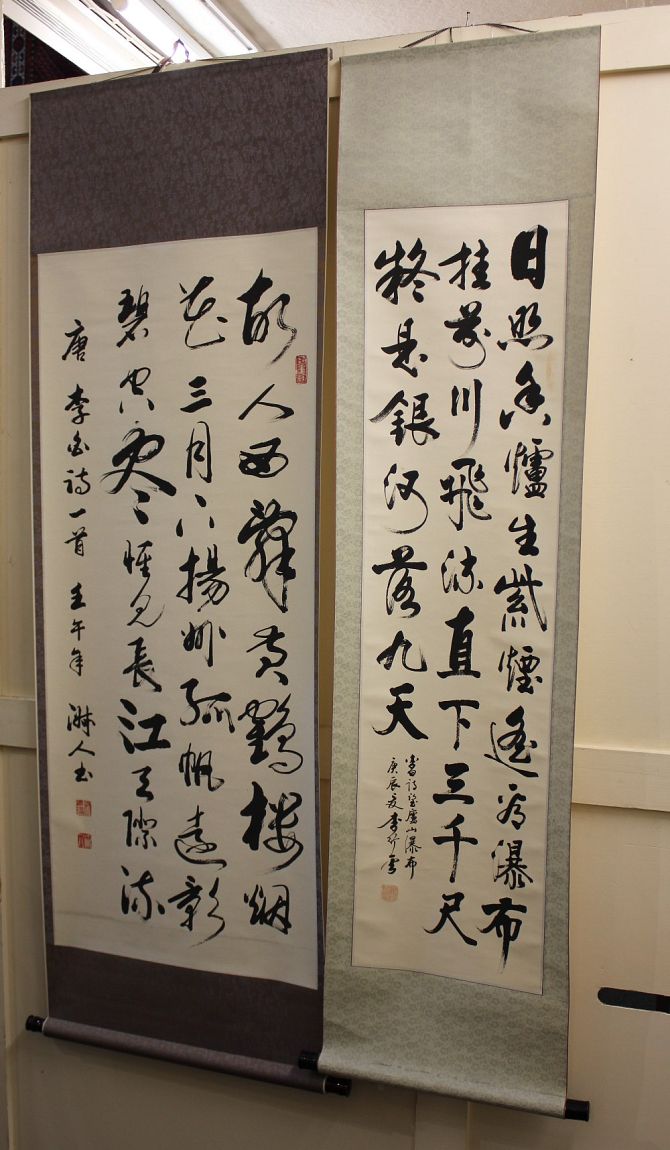 日照香爐生紫煙遙看瀑布
挂前川飛流直下三千尺
疑是銀河落九天
詩望廬山瀑布
庚辰夏李
故人西辭黄鶴楼烟
花三月下揚州孤帆遠影
碧空尽惟見長江天際流
唐李白詩一首壬午年淋人书